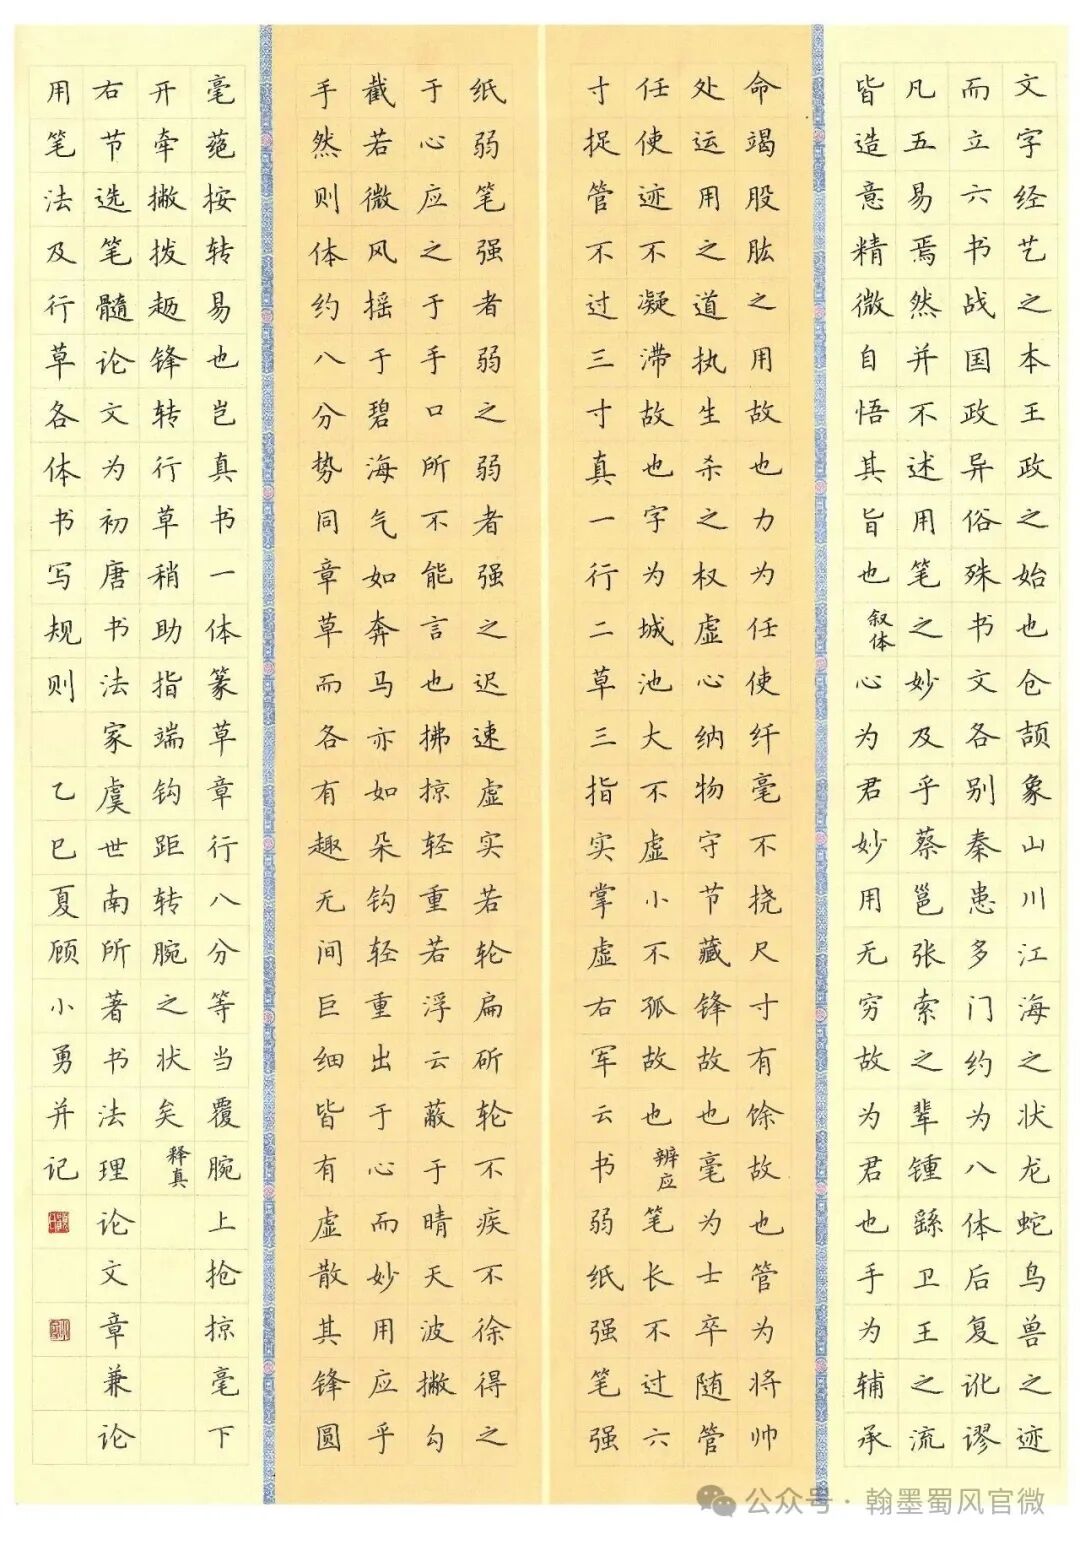 文字经艺之本王政之始也仓颉象山川江海之状龙蛇鸟兽之迹
而立六书战国政异俗殊书文各别秦患多门约为八体后复讹谬
凡五易焉然并不述用笔之妙及乎蔡邕张索之辈锺繇卫王之流
皆造意精微自悟其旨也叙体心为君妙用无穷故为君也手为辅承
命竭股肱之用故也力为任使纤毫不挠尺寸有馀故也管为将帅
处运用之道执生杀之权虚心纳物守节藏锋故也毫为士卒随管
任使迹不凝滞故也字为城池大不虚小不孤故也辨应笔长不过六
寸捉管不过三寸真一行二草三指实掌虚右军云书弱纸强笔强
纸弱笔强者弱之弱者强之迟速虚实若轮扁斫轮不疾不徐得之
于心应之于手口所不能言也拂掠轻重若浮云蔽于晴天波撇勾
截若微风摇于碧海气如奔马亦如朵钩轻重出于心而妙用应乎
手然则体约八分势同章草而各有趣无间巨细皆有虚散其锋圆
毫蕝按转易也岂真书一体篆草章行八分等当覆腕上抢掠毫下
开牵撇拨锋转行草稍助指端钩距转腕之状矣释真
右节选笔髓论文为初唐书法家虞世南所著书法理论文章兼论
用笔法及行草各体书写规则 乙巳夏顾小勇并记
公众号·翰墨蜀风官微